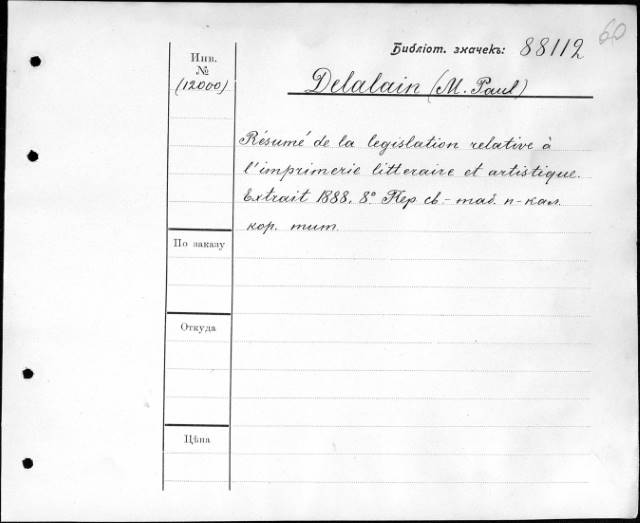 60
Библіот. значекъ: 88112
Инв.
№
(12000)
Delalain (M. Paul)
Résumé de la legislation relative à
l'imprimerie litteraire et artistique.
Extrait 1888. 8° Пер св.-таб. п-кал.
кор. тит.
По заказу
Откуда
Цѣна